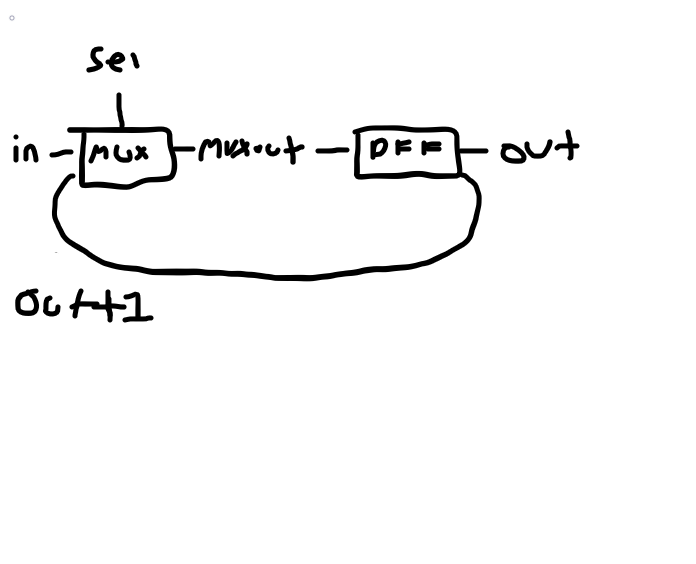 sel
in MUX mux.ut DFF out
out+1